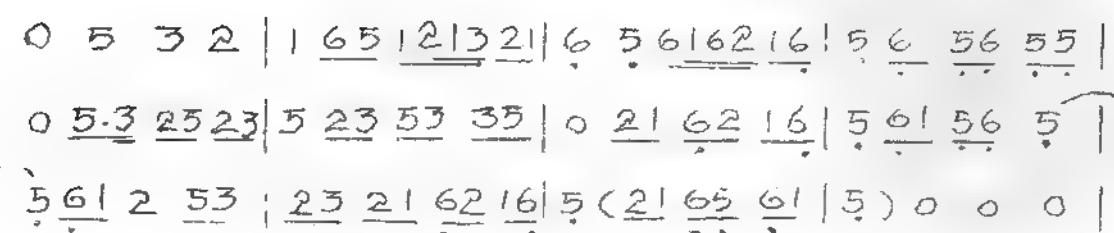 0 5 3 2 | 1 65 1213 21 | 6 5 6162 16 | 5 6 56 55 |
0 5·3 25 23 | 5 23 53 35 | 0 21 62 16 | 5 61 56 5 |
5 61 2 53 | 23 21 62 16 | 5 (21 65 61 | 5) 0 0 0 |